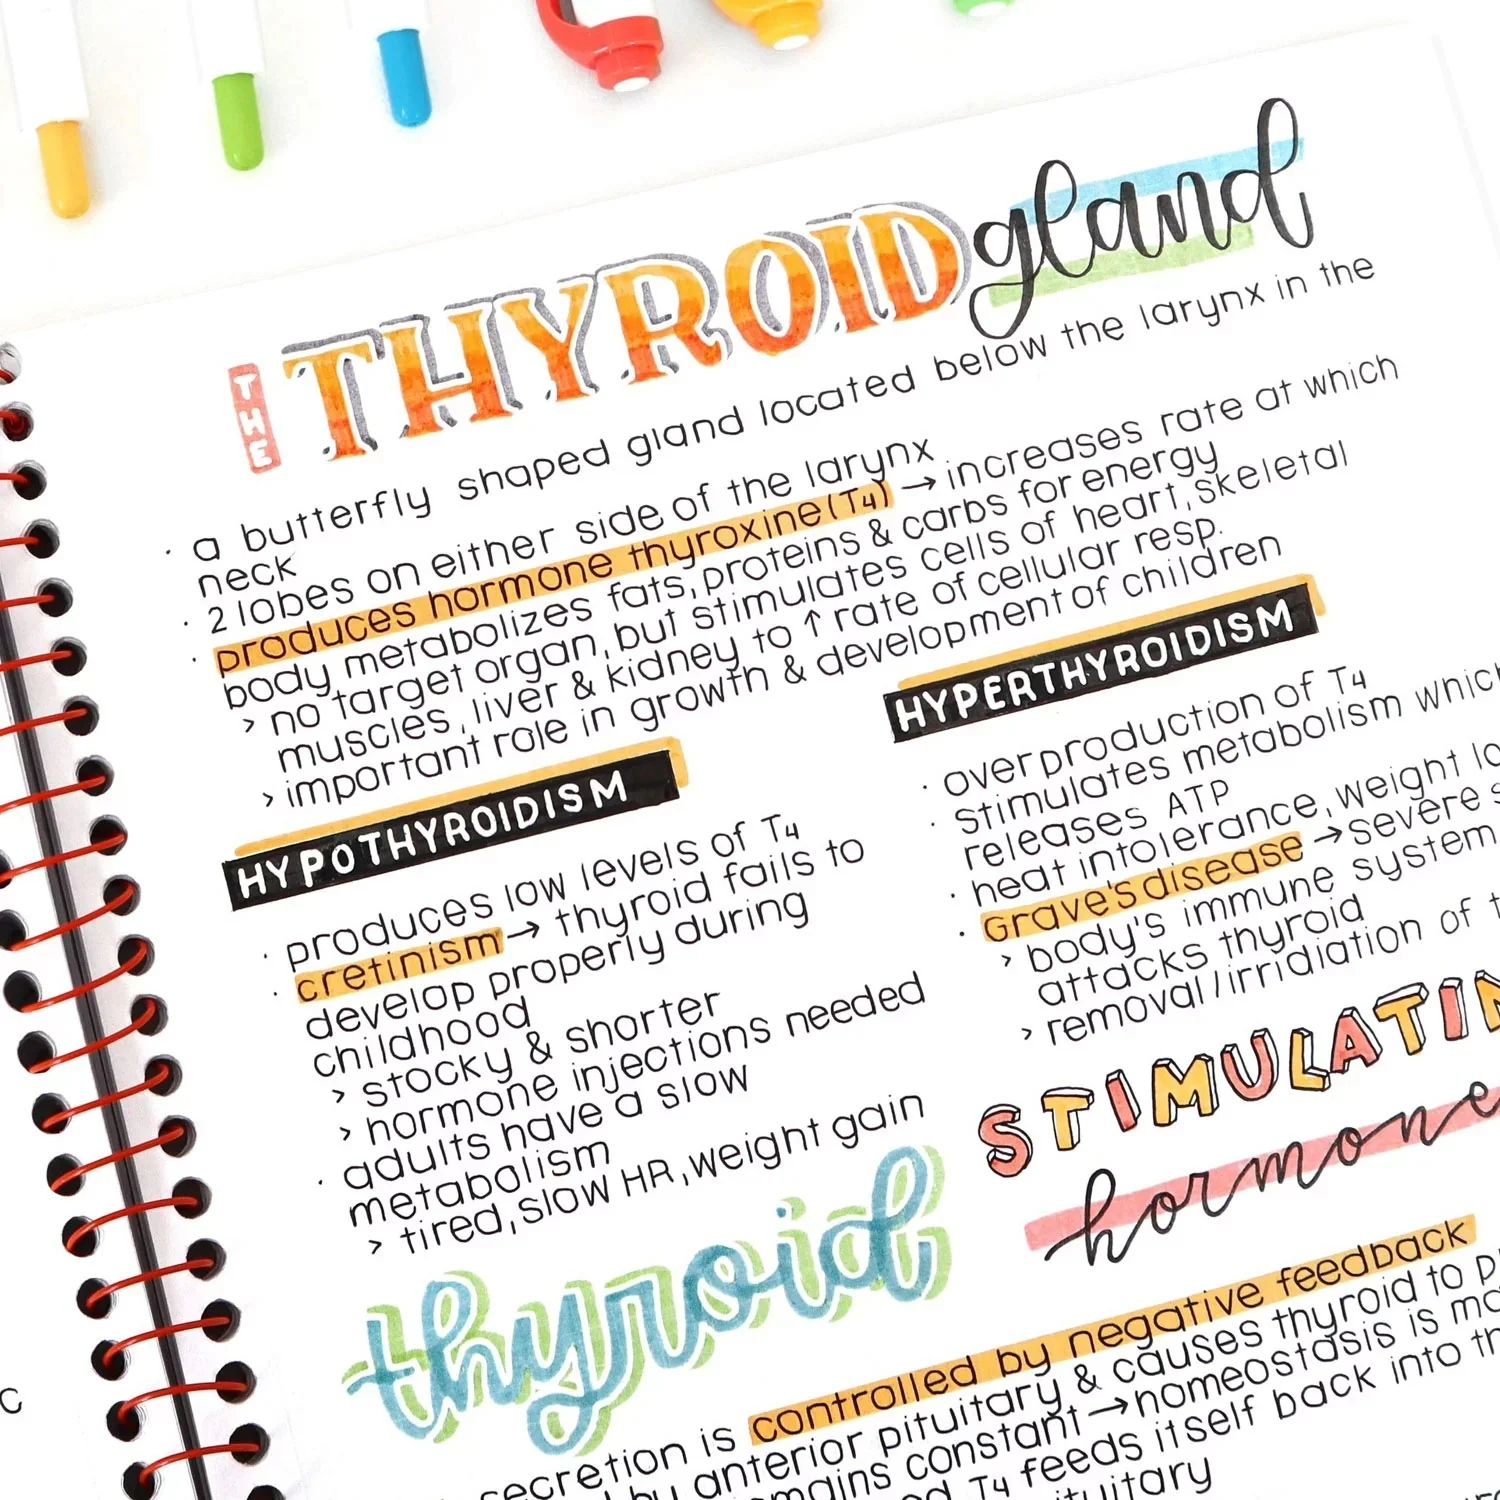 THE THYROID gland
· a butterfly shaped gland located below the larynx in the
neck
· 2 lobes on either side of the larynx
· produces hormone thyroxine (T4) → increases rate at which
body metabolizes fats, proteins & carbs for energy
> no target organ, but stimulates cells of heart, skeletal
muscles, liver & kidney to ↑ rate of cellular resp.
> important role in growth & development of children
HYPOTHYROIDISM
· produces low levels of T4
· cretinism → thyroid fails to
develop properly during
childhood
> stocky & shorter
> hormone injections needed
· adults have a slow
metabolism
> tired, slow HR, weight gain
HYPERTHYROIDISM
· overproduction of T4
· stimulates metabolism which
releases ATP
· heat intolerance, weight lo
· Grave's disease → severe s
> body's immune system
attacks thyroid
> removal/irridiation of t
thyroid STIMULATIN
hormone
secretion is controlled by negative feedback
by anterior pituitary & causes thyroid to p
mains constant → homeostasis is ma
T4 feeds itself back into th
ituitary
c